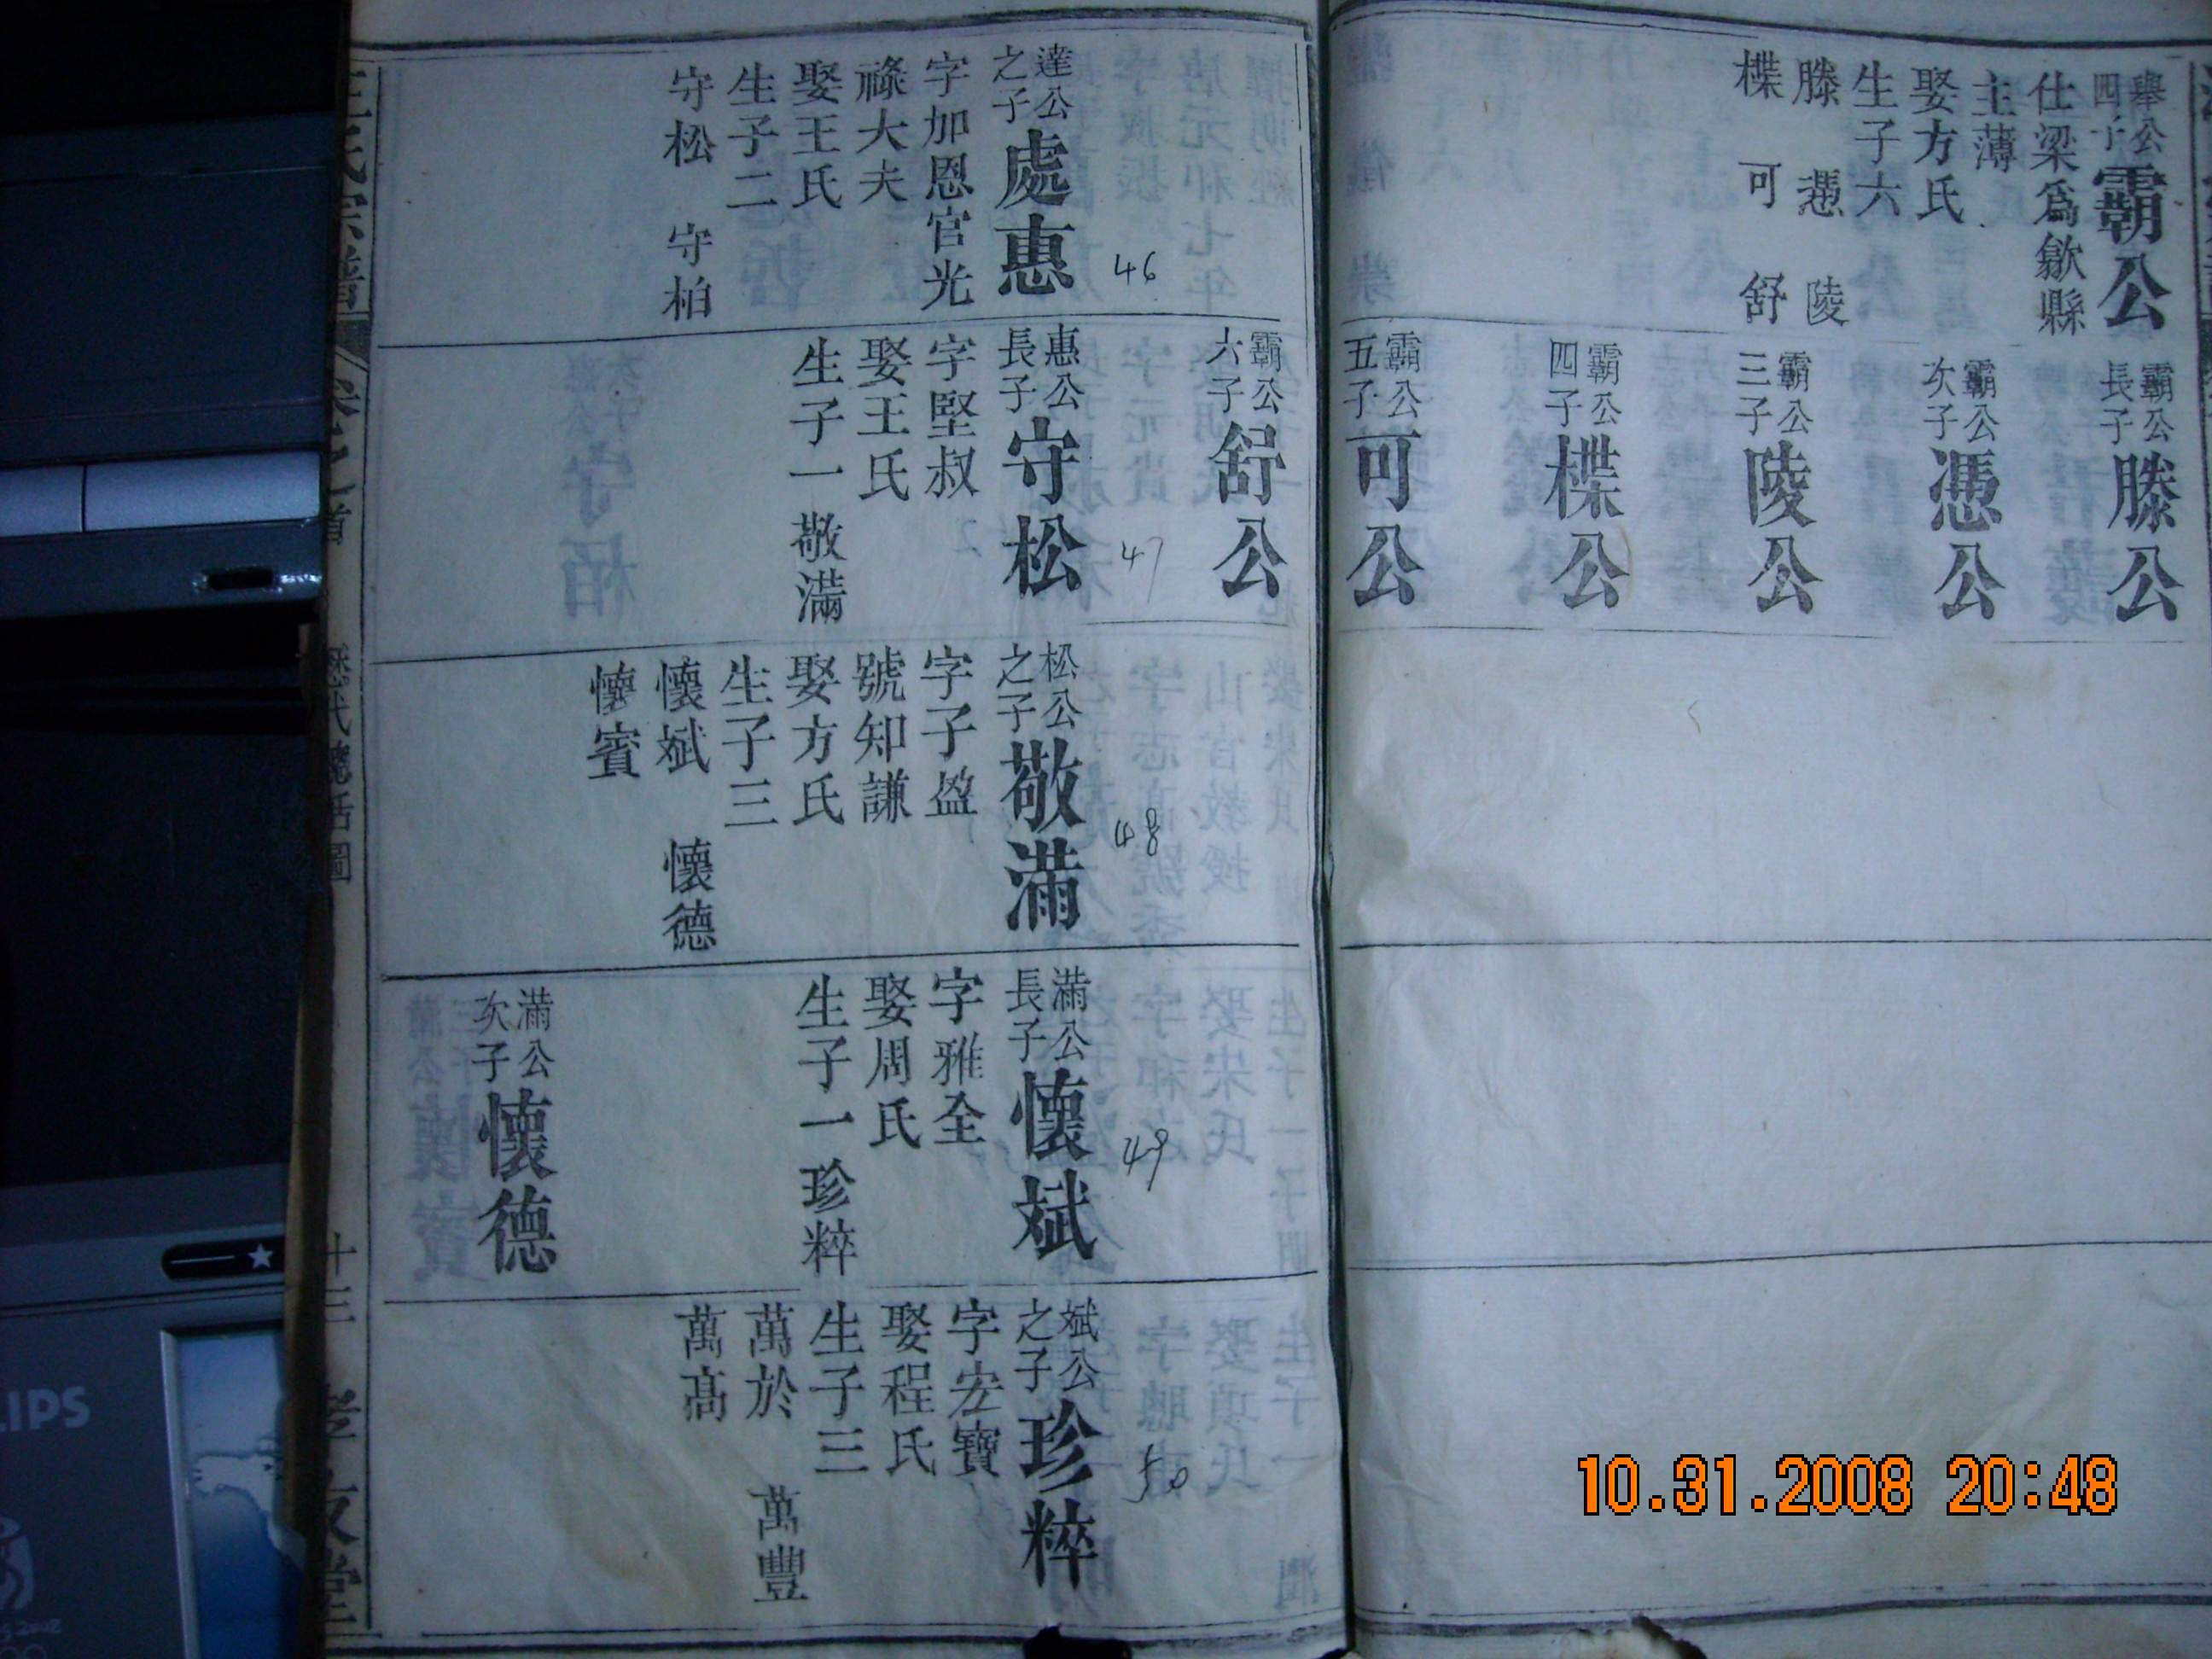 舉公
四子
霸公
仕梁爲歙縣
主薄
娶方氏
生子六
滕 憑 陵
楪 可 舒
霸公
長子
滕公
霸公
次子
憑公
霸公
三子
陵公
霸公
四子
楪公
霸公
五子
可公
霸公
六子
舒公
達公
之子
處惠
46
字加恩官光
祿大夫
娶王氏
生子二
守松 守柏
惠公
長子
守松
47
字堅叔
娶王氏
生子一 敬滿
松公
之子
敬滿
48
字子盈
號知謙
娶方氏
生子三
懷斌 懷德
懷賓
滿公
長子
懷斌
49
字雅全
娶周氏
生子一 珍粹
滿公
次子
懷德
斌公
之子
珍粹
50
字宏寶
娶程氏
生子三
萬於 萬豐
萬高
歷代總括圖
十三
10.31.2008 20:48
LIPS